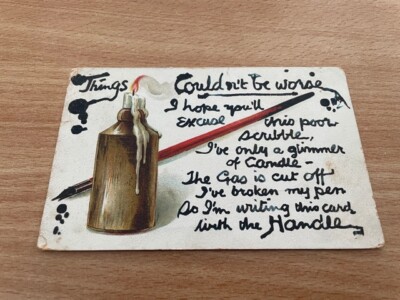 Things Couldn't be worse
I hope you'll
excuse this poor
scribble,
I've only a glimmer
of Candle -
The Gas is cut off
I've broken my pen
So I'm writing this card
with the Handle